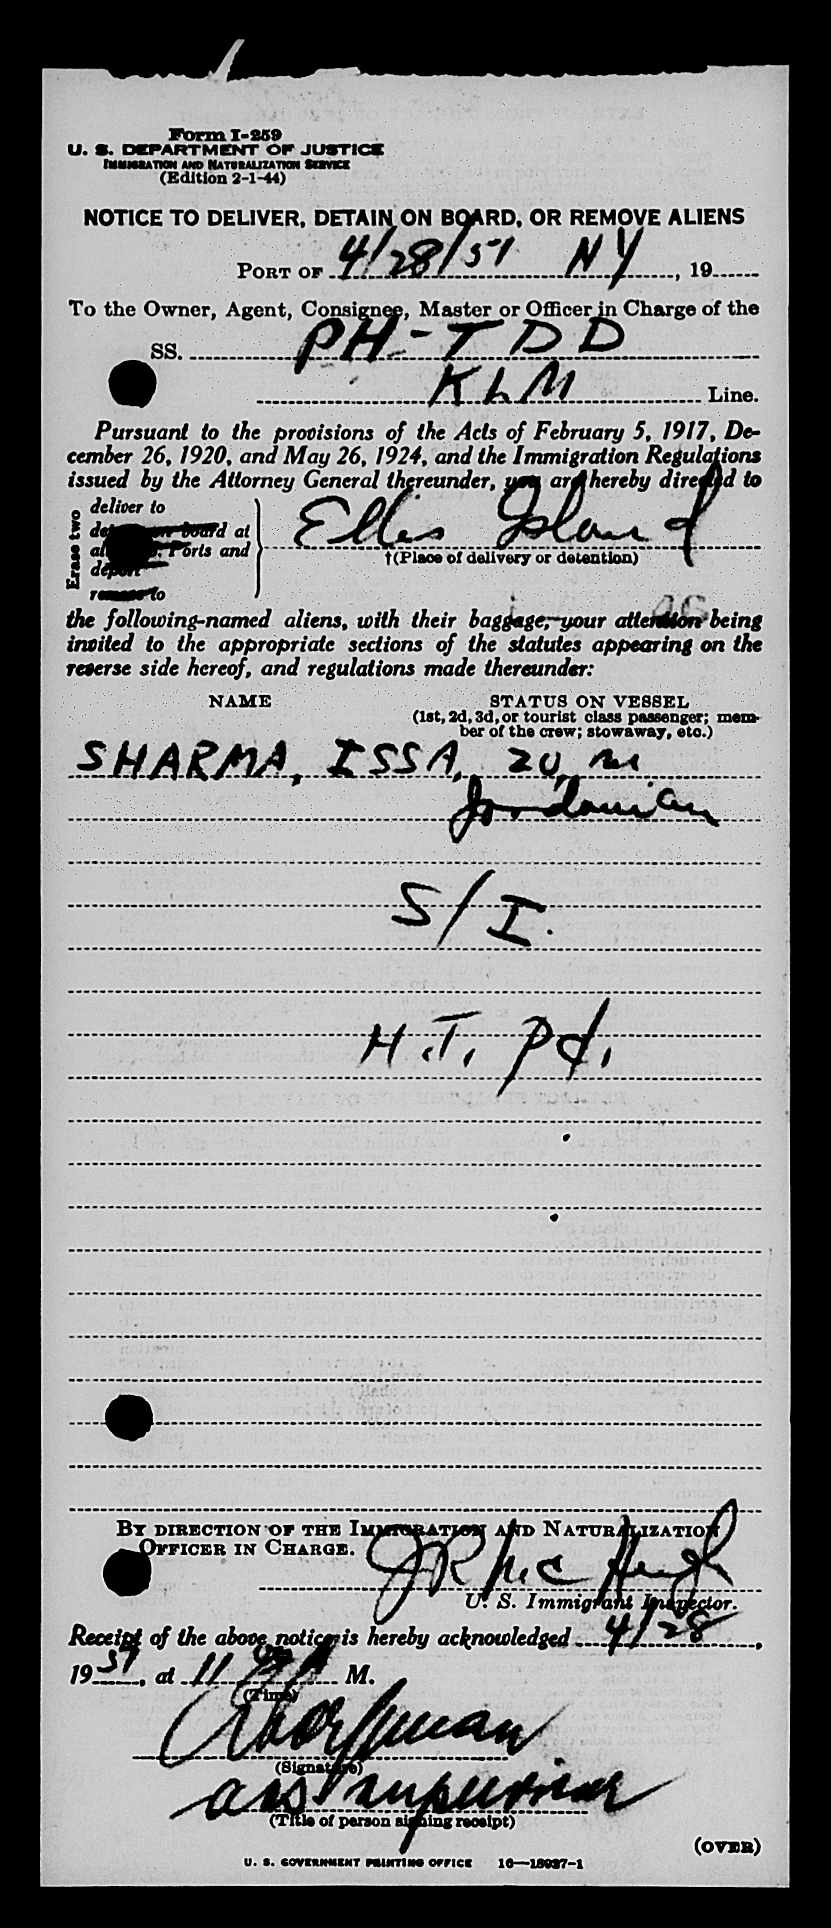 Form I-259
U. S. DEPARTMENT OF JUSTICE
IMMIGRATION AND NATURALIZATION SERVICE
(Edition 2-1-44)
NOTICE TO DELIVER, DETAIN ON BOARD, OR REMOVE ALIENS
PORT OF 4/28/51 NY, 19
To the Owner, Agent, Consignee, Master or Officer in Charge of the
SS. PH-TDD
KLM Line.
Pursuant to the provisions of the Acts of February 5, 1917, De-
cember 26, 1920, and May 26, 1924, and the Immigration Regulations
issued by the Attorney General thereunder, you are hereby directed to
Erase two
deliver to
board at
Ports and
to
Ellis Island
†(Place of delivery or detention)
the following-named aliens, with their baggage, your attention being
invited to the appropriate sections of the statutes appearing on the
reverse side hereof, and regulations made thereunder:
NAME STATUS ON VESSEL
(1st, 2d, 3d, or tourist class passenger; mem-
ber of the crew; stowaway, etc.)
SHARMA, ISSA, 20, m
Jordanian
S/I.
H.T. pd.
BY DIRECTION OF THE IMMIGRATION AND NATURALIZATION
OFFICER IN CHARGE.
U. S. Immigrant Inspector.
Receipt of the above notice is hereby acknowledged 4/28,
1951, at 11 A M.
(Time)
(Signature)
ass supervisor
(Title of person signing receipt)
(OVER)
U. S. GOVERNMENT PRINTING OFFICE 16—18937-1